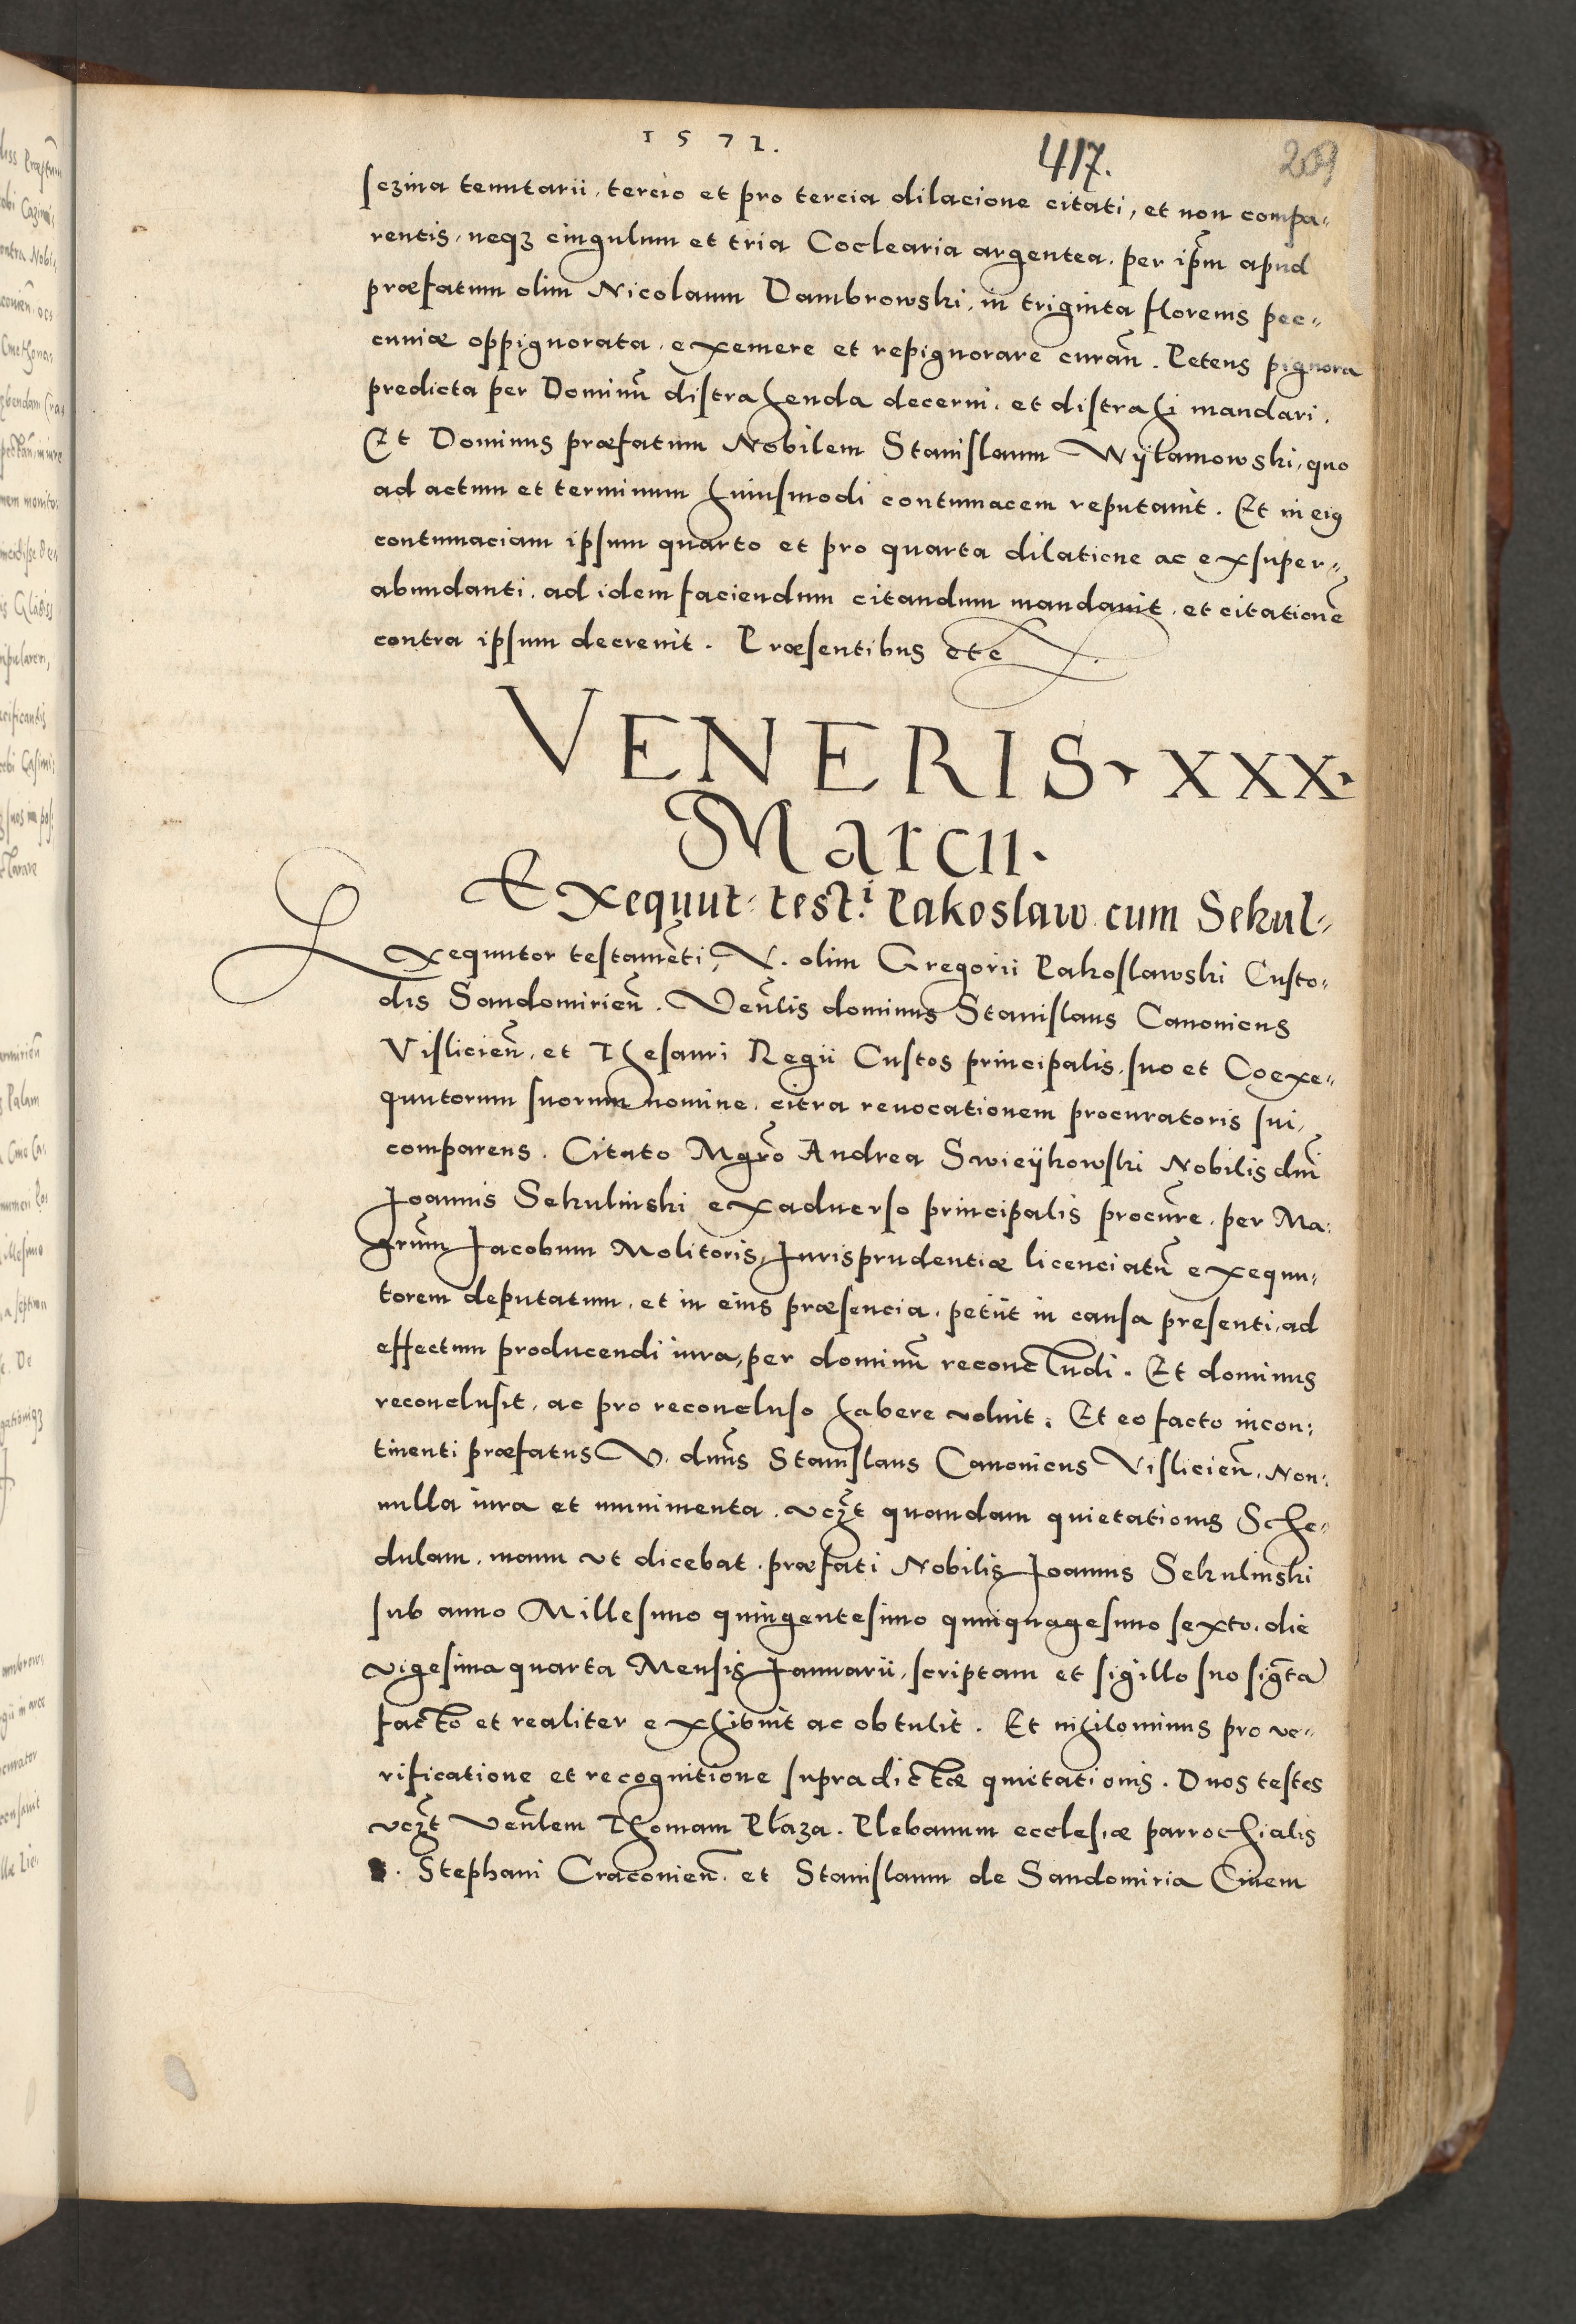 1571.
417.
209
sczina tenutarii, tercio et pro tercia dilacione citati, et non compa-
rentis, neqz cingulum et tria Coclearia argentea, per ip̄m apud
præfatum olim Nicolaum Dambrowski, in triginta florenis pec-
cuniæ oppignorata, exemere et repignorare curan̄. Petens pignora
predicta per Dominū distrahenda decerni, et distrahi mandari.
Et Dominus præfatum Nobilem Stanislaum Wÿtamowski, quo
ad actum et terminum huiusmodi contumacem reputauit. Et in eiꝰ
contumaciam ipsum quarto et pro quarta dilatione ac exsuper-
abundanti, ad idem faciendum citandum mandauit, et citationē
contra ipsum decreuit. Præsentibus etc
VENERIS. XXX.
Marcii.
Exequut: test.i Pakoslaw cum Sekul-
Exequutor testamēti, V. olim Gregorii Pakoslawski Custo-
dis Sandomirien̄. Venlis̄ dominus Stanislaus Canonicus
Vislicien̄. et Thesauri Regii Custos principalis, suo et Coexe-
quutorum suorum nomine, citra reuocationem procuratoris sui,
comparens. Citato Mgrō Andrea Swieÿkowski Nobilis dn̄i
Joannis Sekulinski exaduerso principalis procūre, per Ma-
grūm Jacobum Molitoris, Jurisprudentiæ licenciatū exequu-
torem deputatum, et in eius præsencia, petiit in causa presenti, ad
effectum producendi iura, per dominū reconcludi. Et dominus
reconclusit, ac pro reconcluso habere voluit. Et eo facto incon-
tinenti præfatus V. dnūs Stanislaus Canonicus Vislicien̄. Non-
nulla iura et munimenta, vcz̄t quandam quietationis Sche-
dulam, manu vt dicebat, præfati Nobilis Joannis Sekulinski
sub anno Millesimo quingentesimo quinquagesimo sexto, die
vigesima quarta Mensis Januarii, scriptam et sigillo suo sig̅tā
facto et realiter exhibuit ac obtulit. Et nihilominus pro ve-
rificatione et recognitione supradictæ quietationis. Duos testes
vcz̄t Venlem̄ Thomam Płaza. Plebanum ecclesiæ parrochialis
S. Stephani Cracouien̄. et Stanislaum de Sandomiria Ciuem